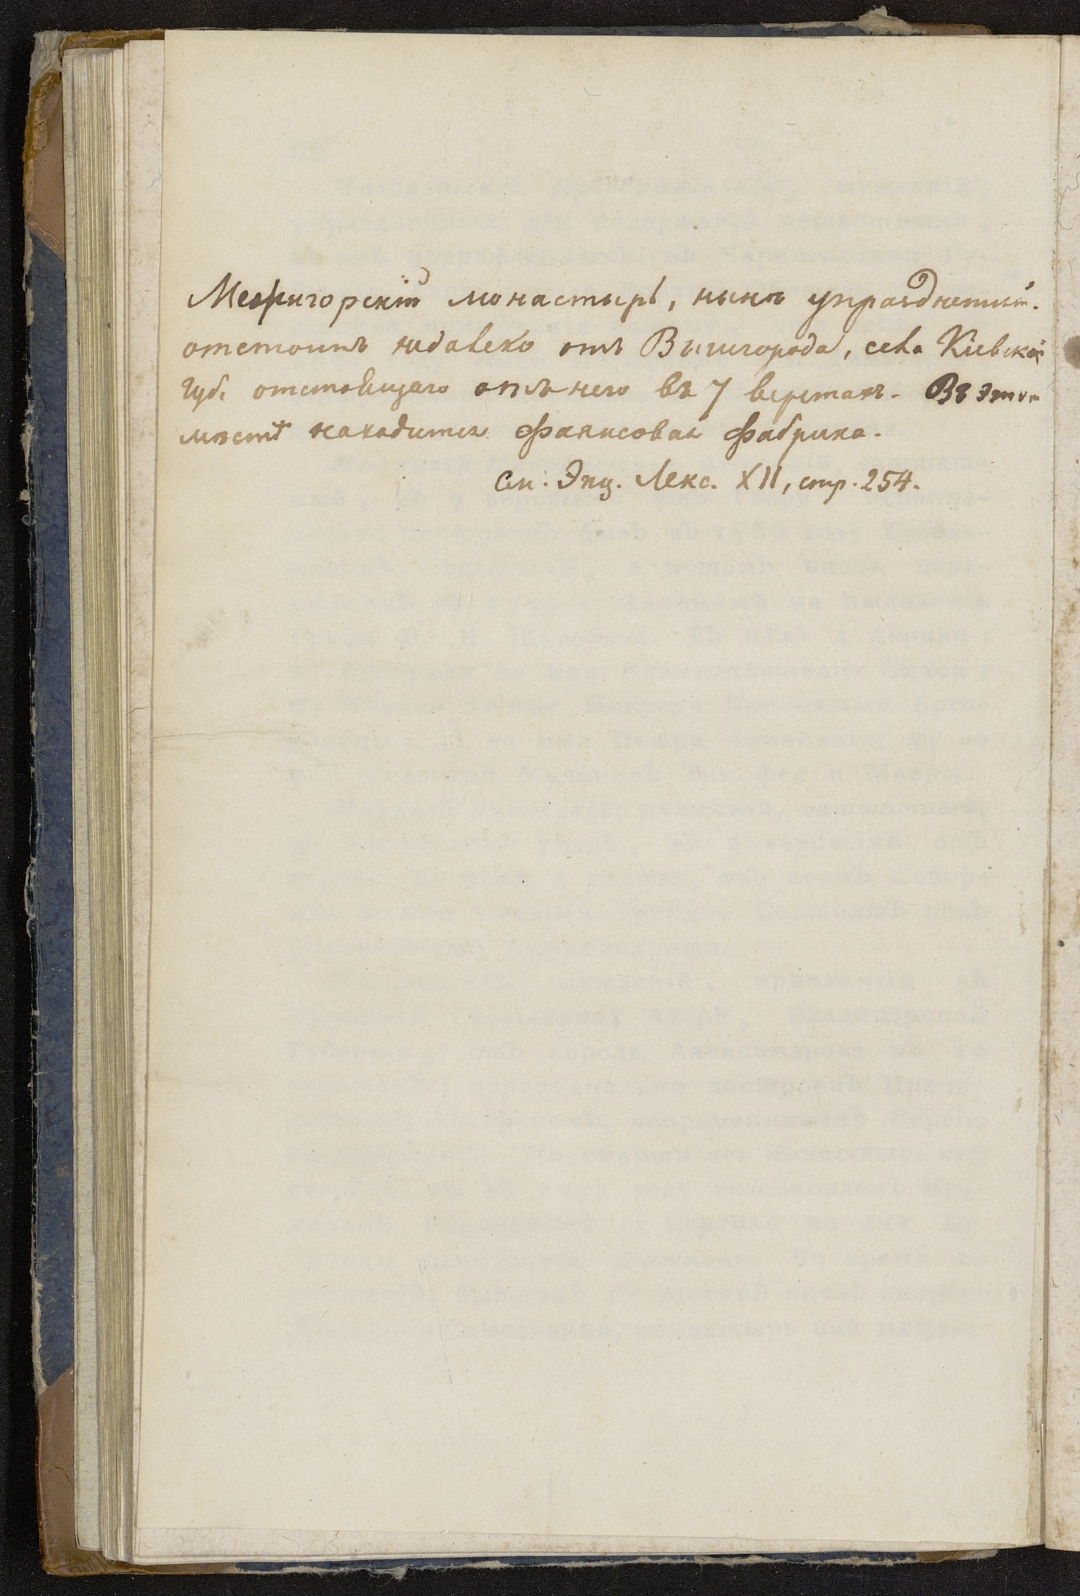 Межигорскій монастырь, нынѣ упраздненный.
отстоитъ недалеко отъ Вышгорода, села Кіевской
Губ. отстоящаго отъ него въ 7 верстах. Въ этом
мѣстѣ находится фаянсовая фабрика.
См. Энц. Лекс. XII, стр. 254.